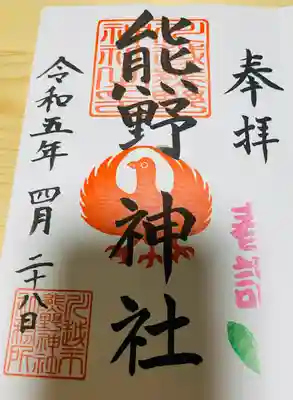 奉拝
熊野神社
令和五年 四月 二十八日
川越市
熊野神社
社務所